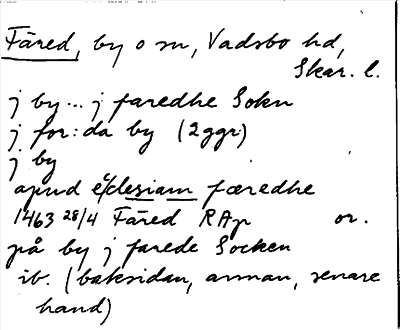 Färed, by o sn, Vadsbo hd,
Skar. l.
j by... j faredhe Sokn
j for:da by (2ggr)
j by
apud ecclesiam færedhe
1463 28/4 Färed RAp or.
på by j farede Socken
ib. (baksidan, annan, senare
hand)